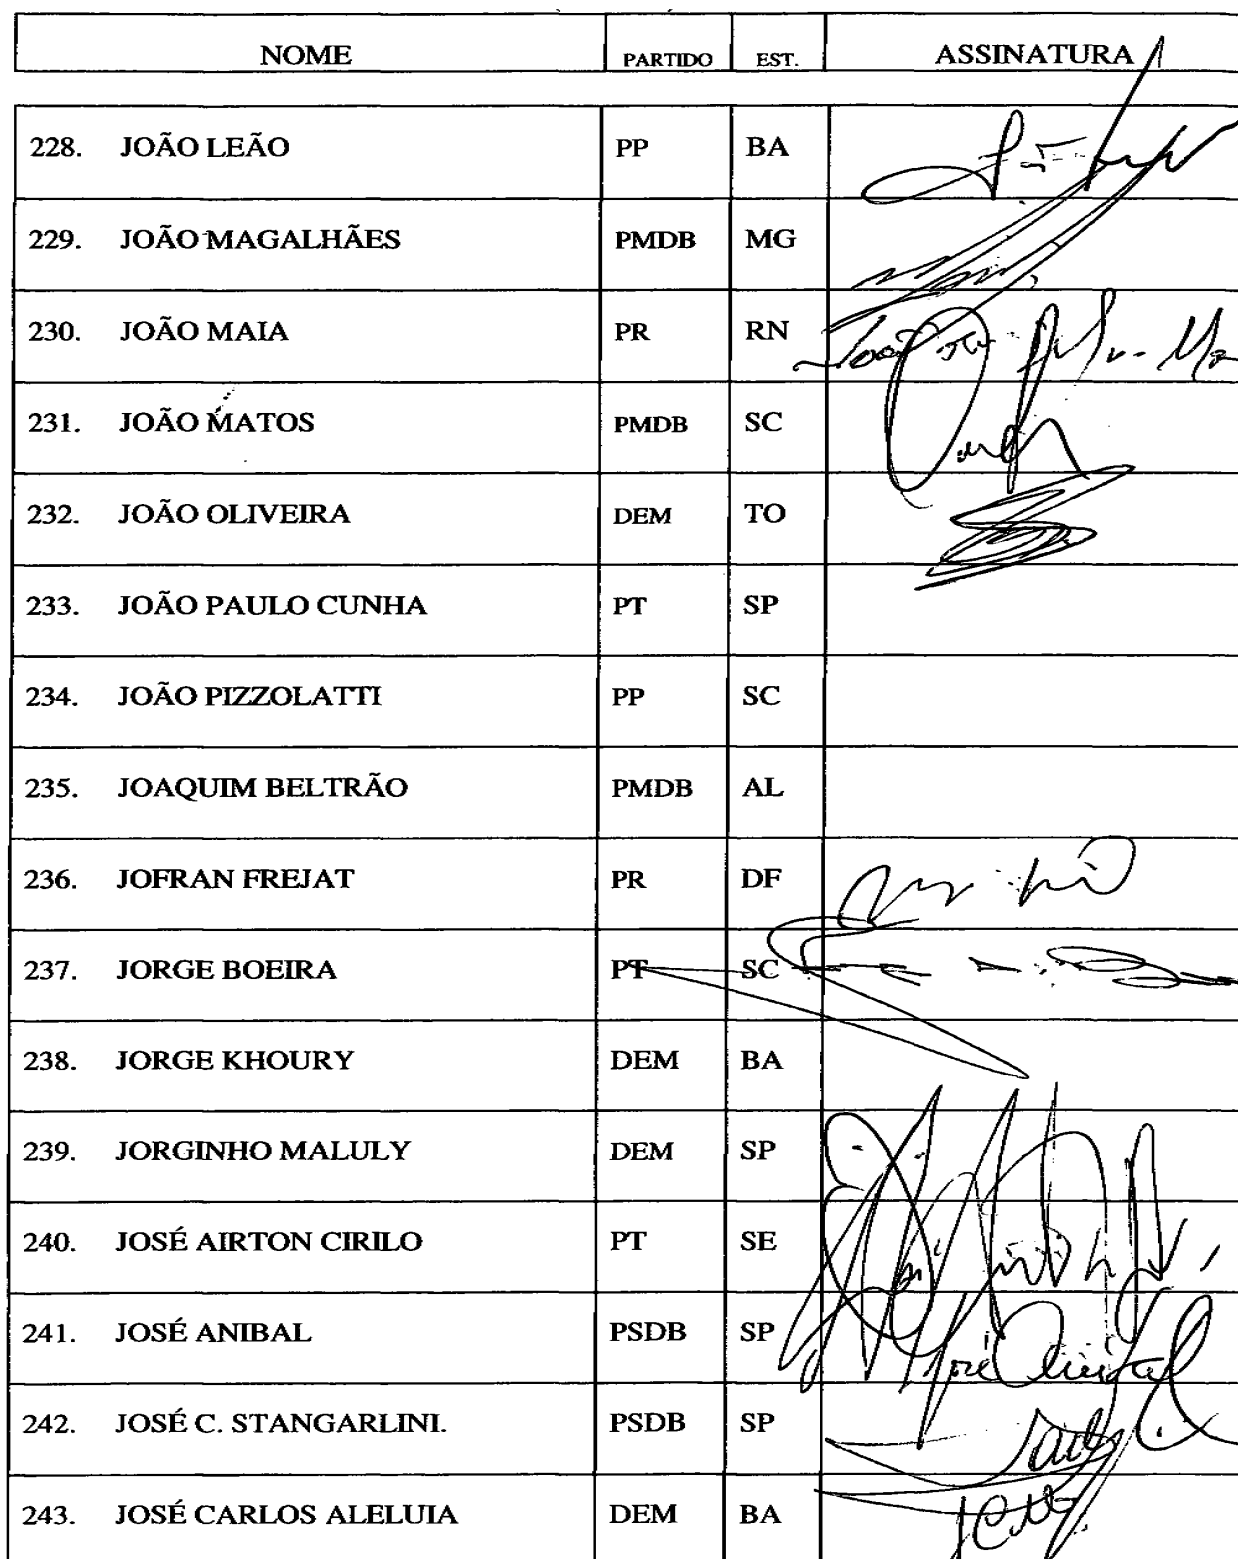 NOME PARTIDO EST. ASSINATURA
228. JOÃO LEÃO PP BA
229. JOÃO MAGALHÃES PMDB MG
230. JOÃO MAIA PR RN
231. JOÃO MATOS PMDB SC
232. JOÃO OLIVEIRA DEM TO
233. JOÃO PAULO CUNHA PT SP
234. JOÃO PIZZOLATTI PP SC
235. JOAQUIM BELTRÃO PMDB AL
236. JOFRAN FREJAT PR DF
237. JORGE BOEIRA PT SC
238. JORGE KHOURY DEM BA
239. JORGINHO MALULY DEM SP
240. JOSÉ AIRTON CIRILO PT SE
241. JOSÉ ANIBAL PSDB SP
242. JOSÉ C. STANGARLINI. PSDB SP
243. JOSÉ CARLOS ALELUIA DEM BA